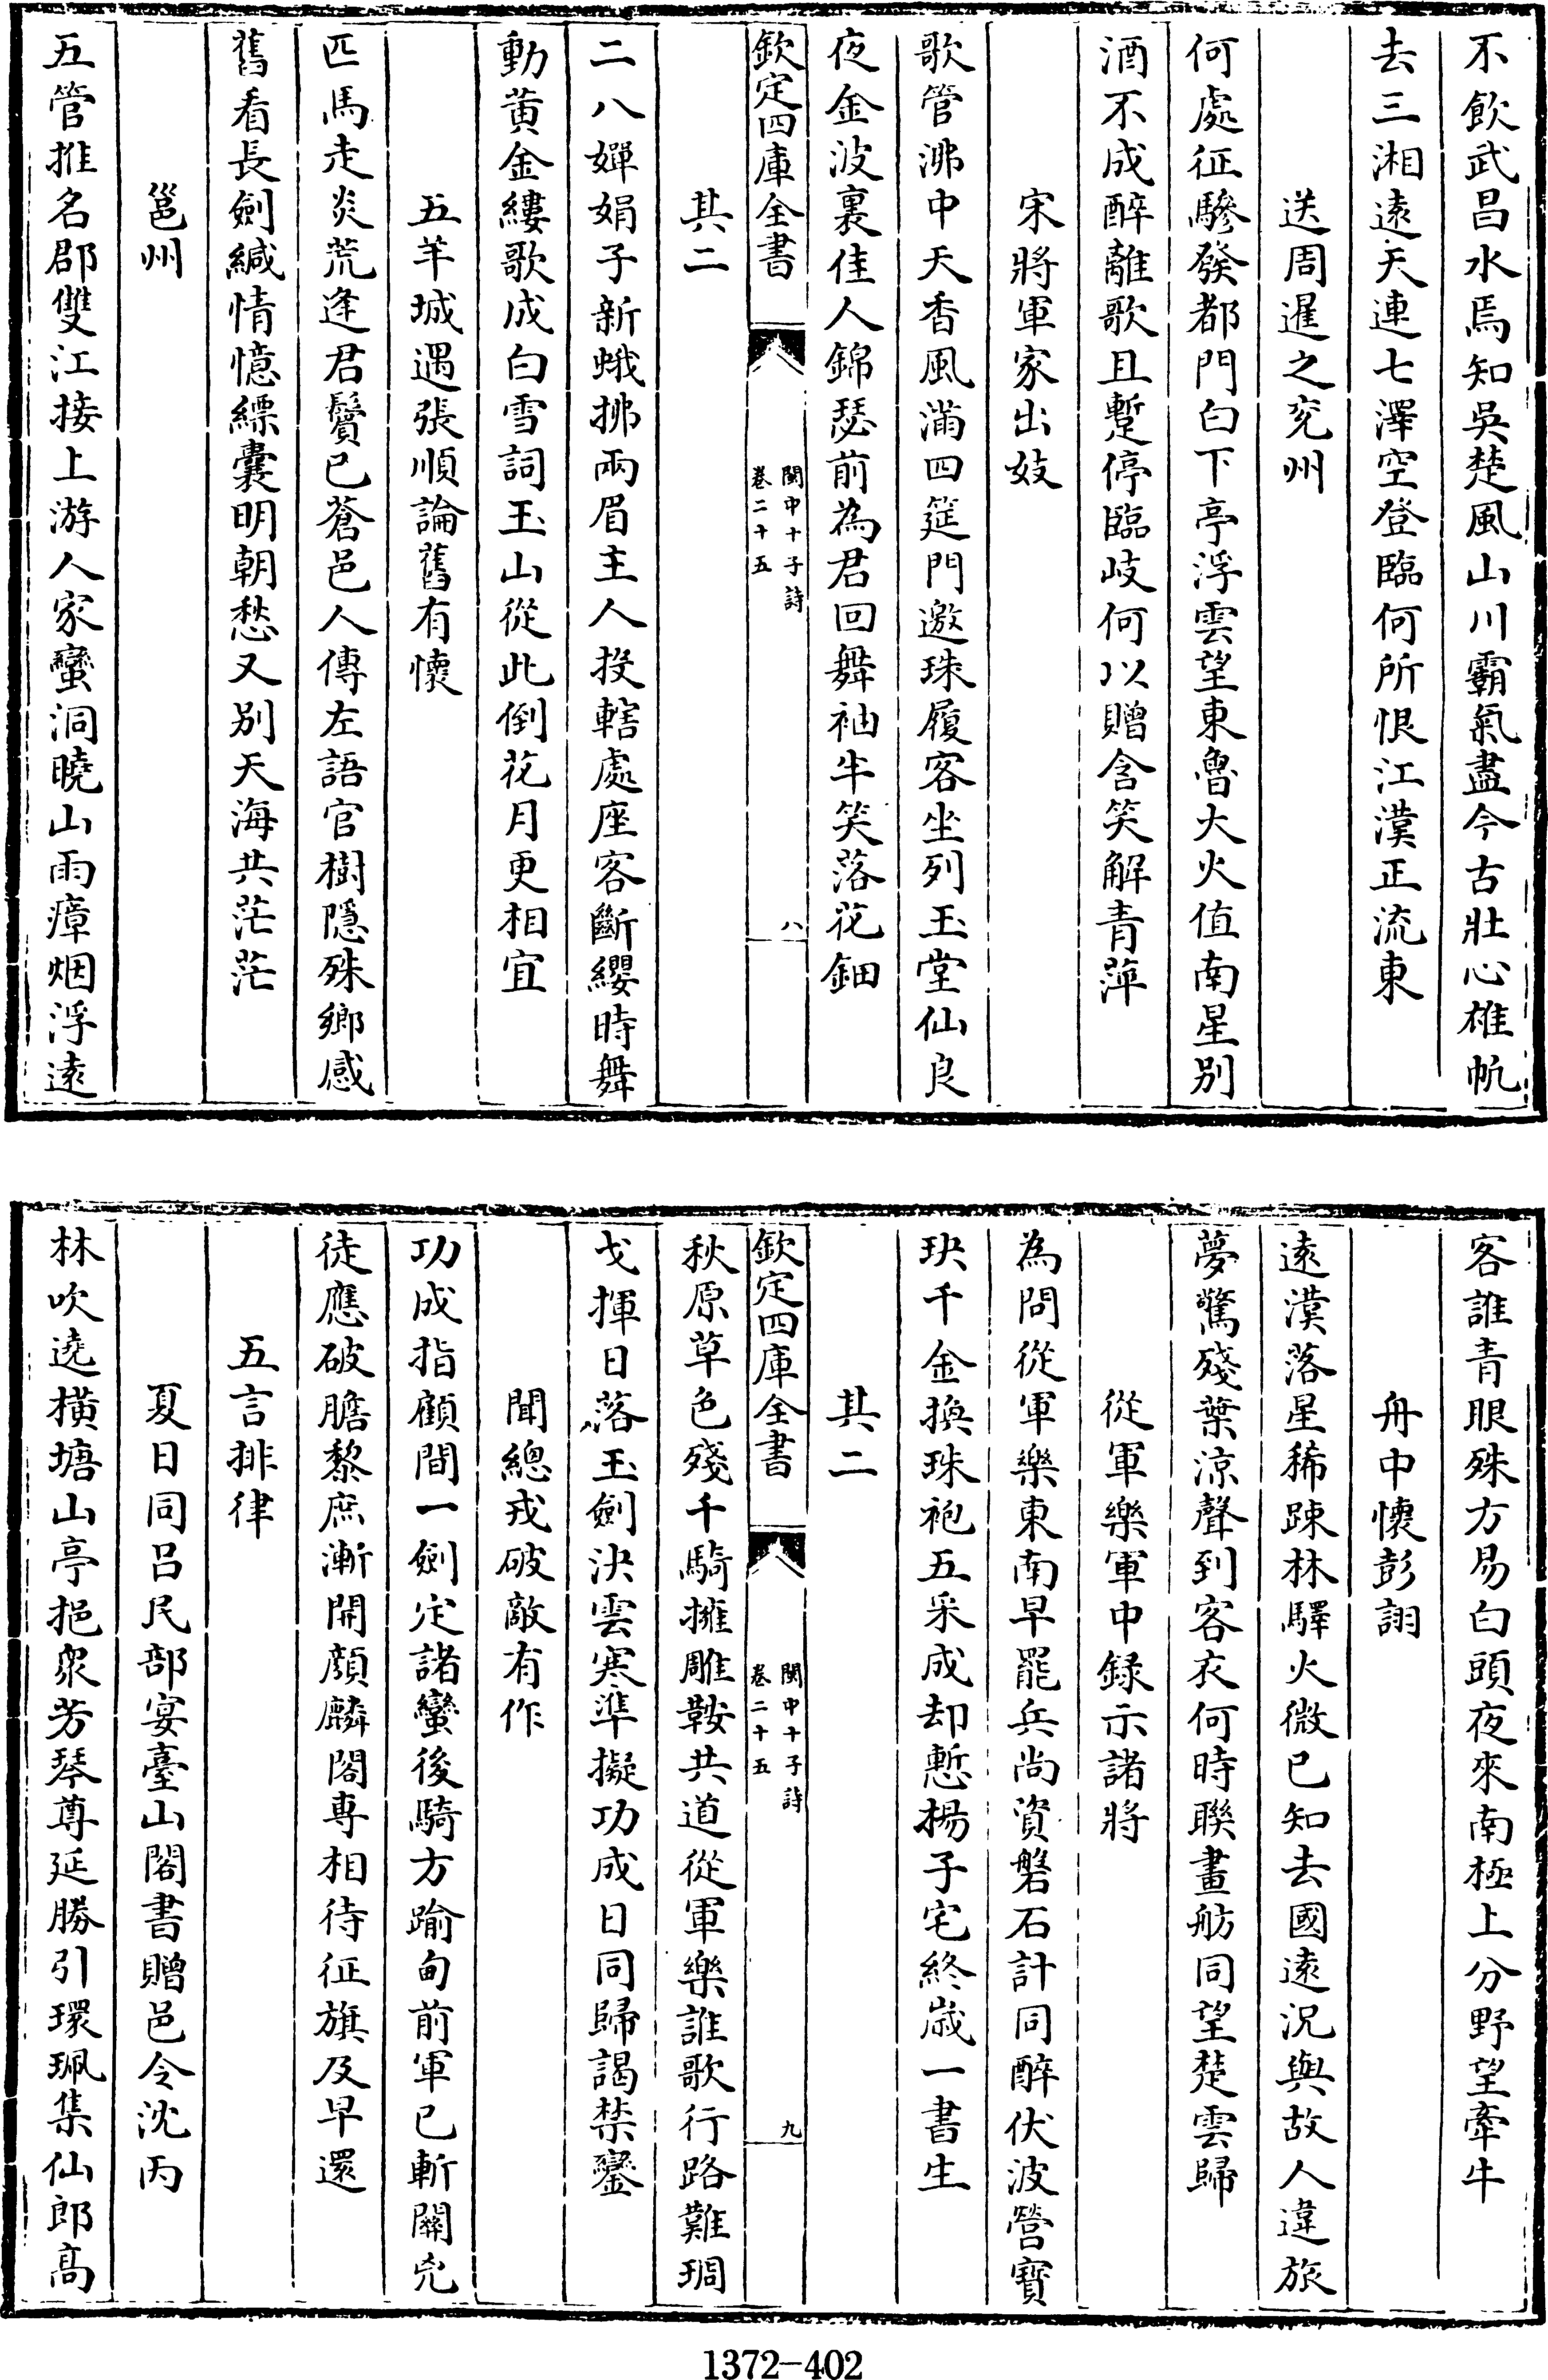 不飲武昌水焉知吳楚風山川霸氣盡今古壯心雄帆
去三湘遠天連七澤空登臨何所恨江漢正流東
送周暹之兖州
何處征驂發都門白下亭浮雲望東魯大火值南星别
酒不成醉離歌且蹔停臨岐何以贈含笑解青萍
宋將軍家出妓
歌管沸中天香風滿四筵門邀珠履客坐列玉堂仙良
夜金波裏佳人錦瑟前為君回舞袖半笑落花鈿
欽定四庫全書
閩中十子詩
卷二十五
八
其二
二八嬋娟子新蛾拂兩眉主人投轄處座客斷纓時舞
動黄金縷歌成白雪詞玉山從此倒花月更相宜
五羊城遇張順論舊有懷
匹馬走炎荒逢君鬢已蒼邑人傳左語官樹隱殊鄉感
舊看長劍緘情憶縹囊明朝愁又别天海共茫茫
邕州
五管推名郡雙江接上游人家蠻洞曉山雨瘴烟浮遠
客誰青眼殊方易白頭夜來南極上分野望牽牛
舟中懷彭詡
遠漢落星稀踈林驛火微已知去國遠況與故人違旅
夢驚殘葉涼聲到客衣何時聯畫舫同望楚雲歸
從軍樂軍中録示諸將
為問從軍樂東南早罷兵尚資磐石計同醉伏波營寳
玦千金換珠袍五采成却慙楊子宅終歲一書生
其二
欽定四庫全書
閩中十子詩
卷二十五
九
秋原草色殘千騎擁雕鞍共道從軍樂誰歌行路難琱
戈揮日落玉劍決雲寒準擬功成日同歸謁禁鑾
聞總戎破敵有作
功成指顧間一劍定諸蠻後騎方踰甸前軍已斬關兇
徒應破膽黎庶漸開顔麟閣専相待征旗及早還
五言排律
夏日同吕民部宴臺山閣書贈邑令沈丙
林吹遶横塘山亭挹衆芳琴尊延勝引環珮集仙郎高
1372-402